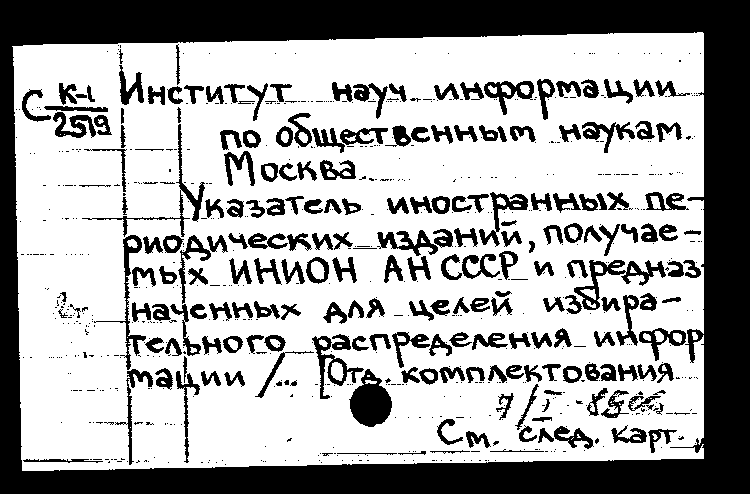 С К-1/2519 Институт науч информации
по общественным наукам.
Москва.
Указатель иностранных пе-
риодических изданий, получае-
мых ИНИОН АН СССР и предназ-
наченных для целей избира-
тельного распределения инфор
мации /... [Отд. комплектования
См. след. карт.